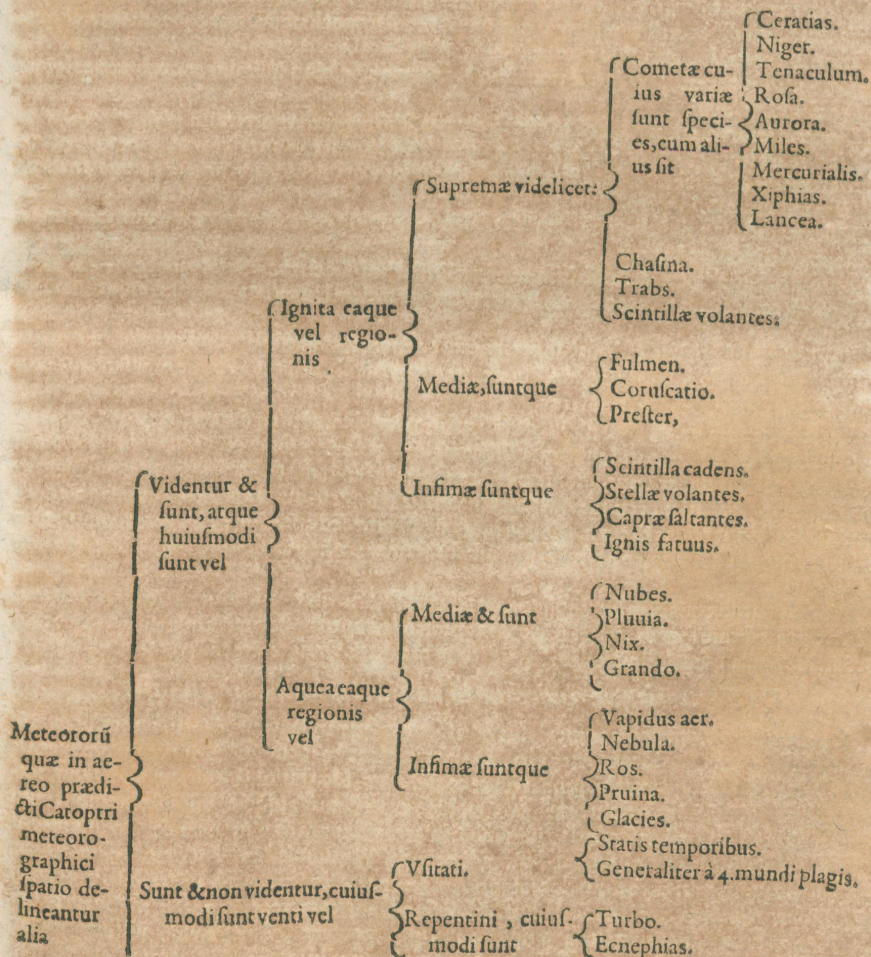 Meteororũ
quæ in ae-
reo prædi-
cti Catoptri
meteoro-
graphici
ſpatio de-
lineantur
alia
Videntur &
ſunt, atque
huiuſmodi
ſunt vel
Ignita eaque
vel regio-
nis
Supremæ videlicet:
Cometæ cu-
ius variæ
ſunt ſpeci-
es, cum ali-
us ſit
Ceratias.
Niger.
Tenaculum.
Roſa.
Aurora.
Miles.
Mercurialis.
Xiphias.
Lancea.
Chaſma.
Trabs.
Scintillæ volantes.
Mediæ, ſuntque
Fulmen.
Coruſcatio.
Preſter,
Infimæ ſuntque
Scintilla cadens.
Stellæ volantes.
Capræ ſaltantes.
Ignis fatuus.
Aquea eaque
regionis
vel
Mediæ & ſunt
Nubes.
Pluuia.
Nix.
Grando.
Infimæ ſuntque
Vapidus aer.
Nebula.
Ros.
Pruina.
Glacies.
Sunt & non videntur, cuiuſ-
modi ſunt venti vel
Vſitati.
Statis temporibus.
Generaliter à 4. mundi plagis.
Repentini, cuiuſ-
modi ſunt
Turbo.
Ecnephias.